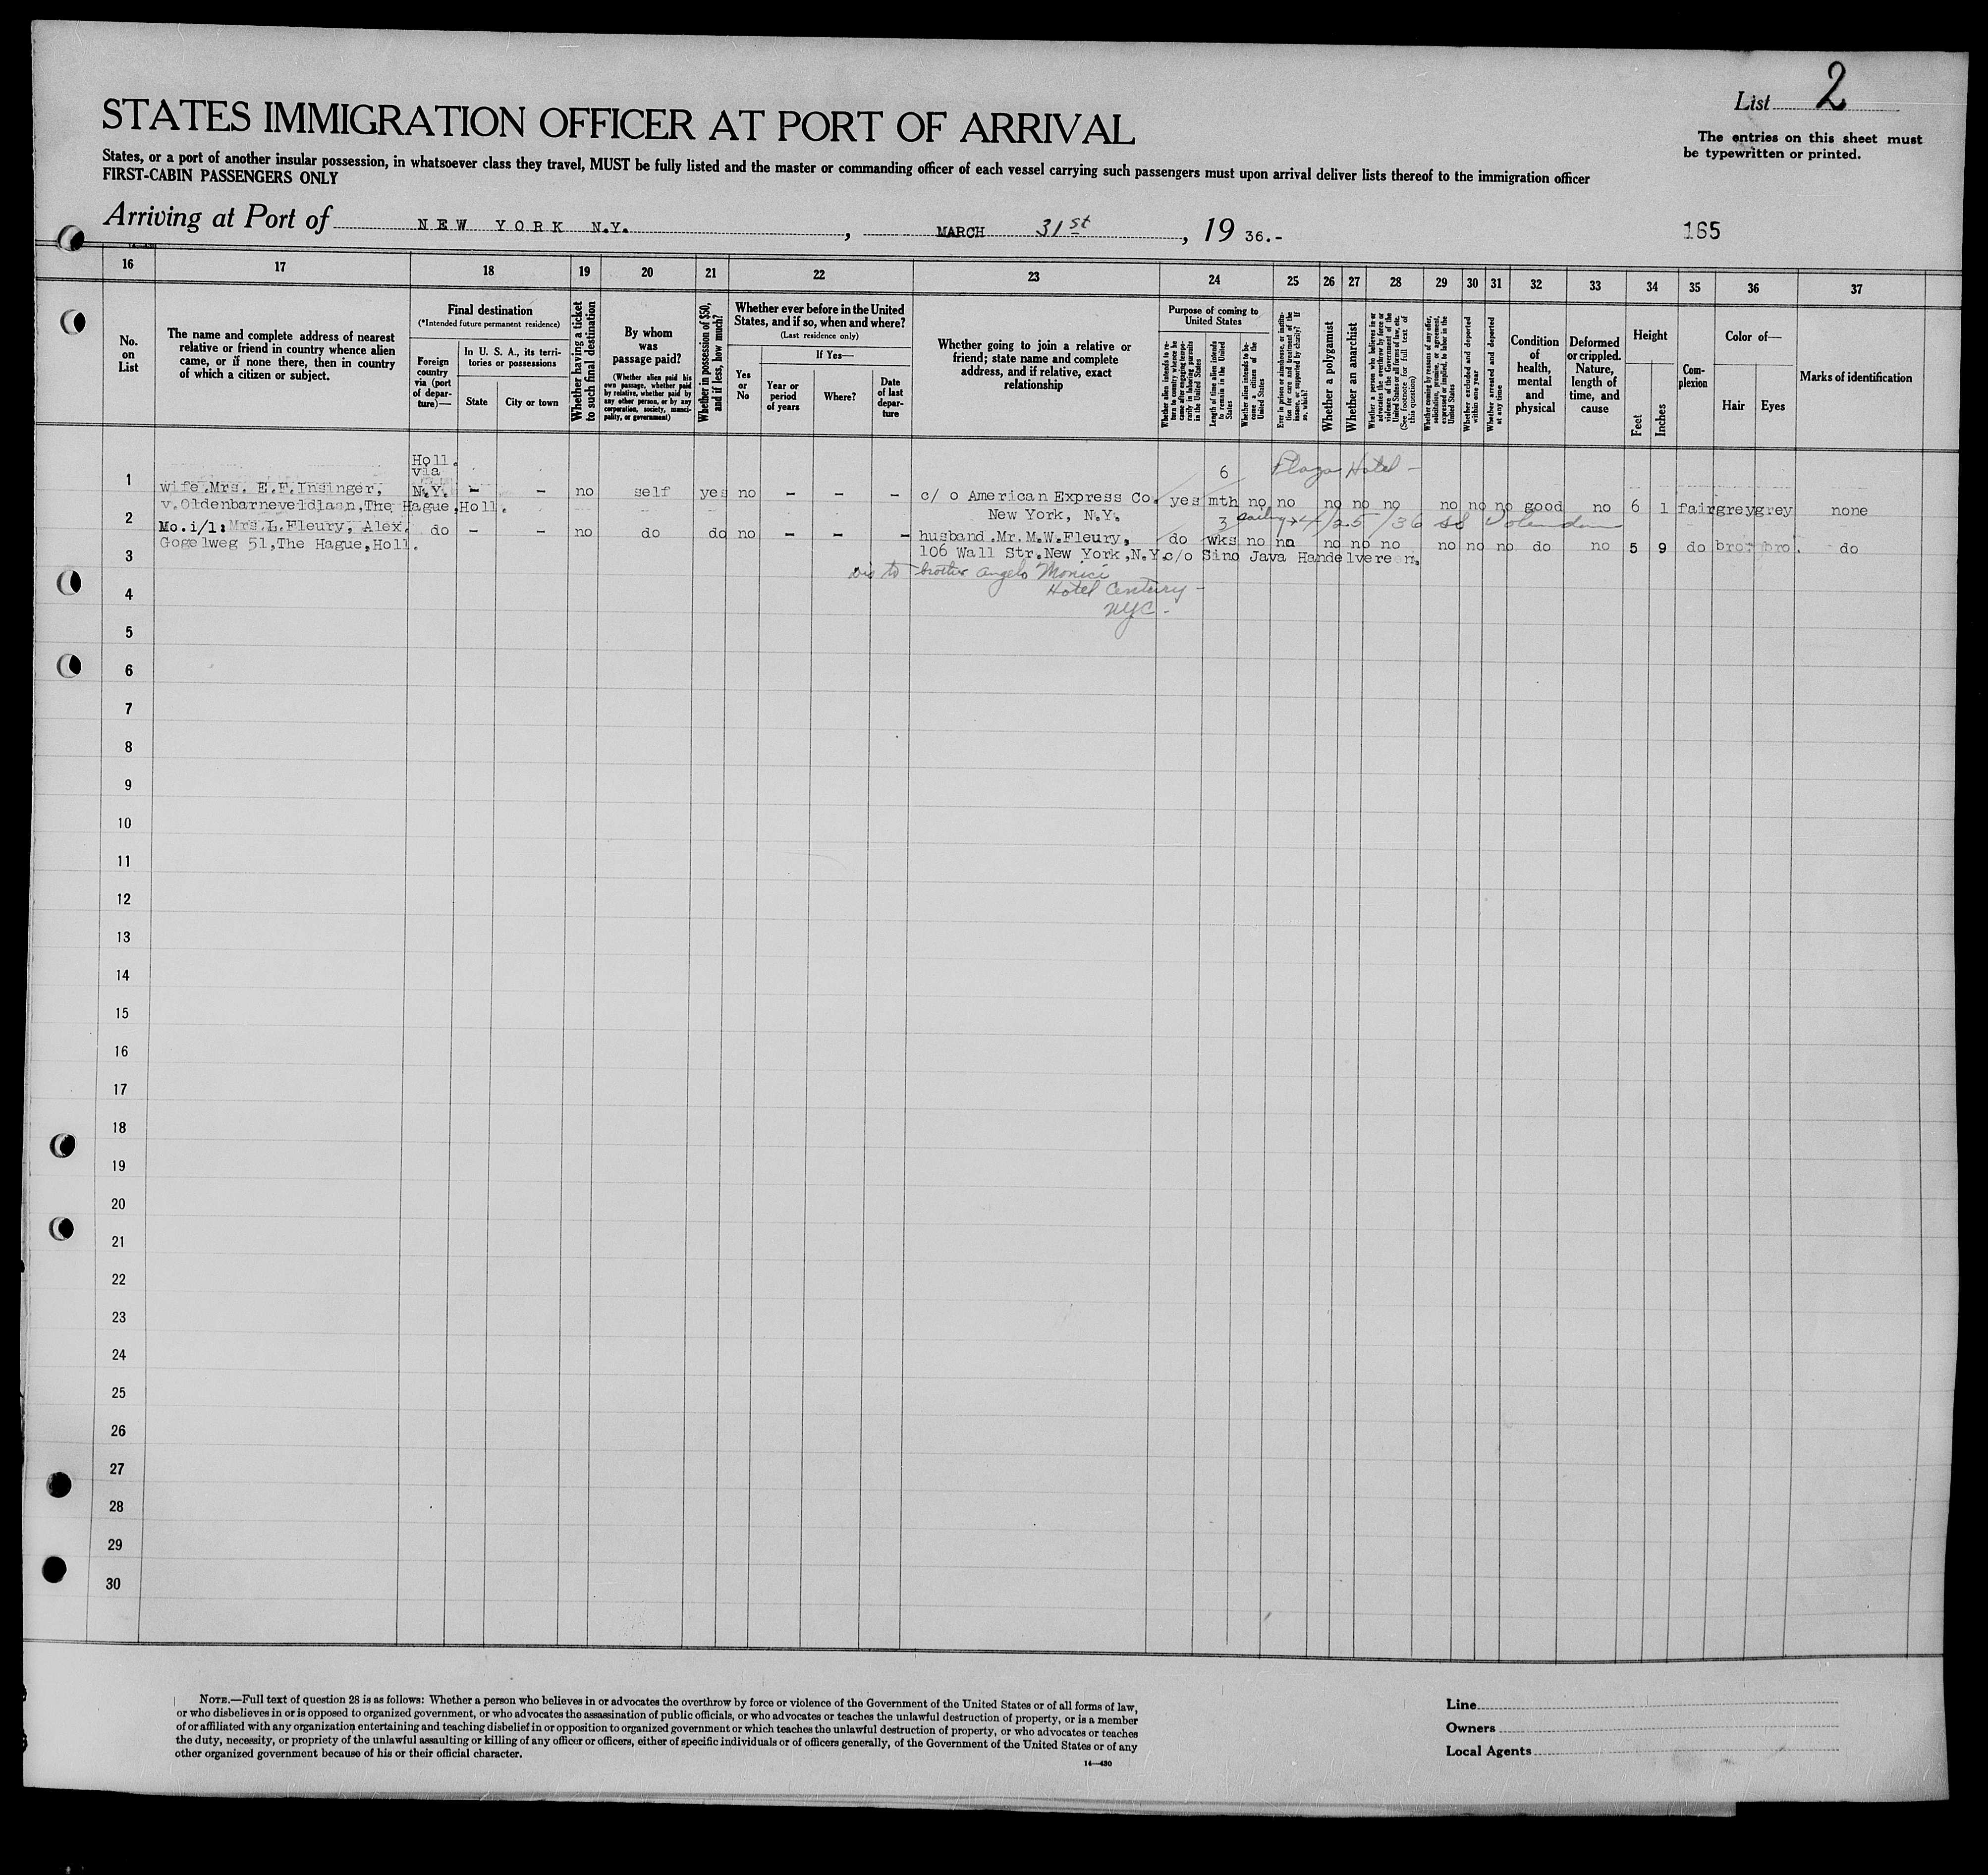 List 2
STATES IMMIGRATION OFFICER AT PORT OF ARRIVAL
The entries on this sheet must
be typewritten or printed.
States, or a port of another insular possession, in whatsoever class they travel, MUST be fully listed and the master or commanding officer of each vessel carrying such passengers must upon arrival deliver lists thereof to the immigration officer
FIRST-CABIN PASSENGERS ONLY
Arriving at Port of NEW YORK N.Y. , MARCH 31st , 19 36.-
165
16 17 18 19 20 21 22 23 24 25 26 27 28 29 30 31 32 33 34 35 36 37
No.
on
List
The name and complete address of nearest
relative or friend in country whence alien
came, or if none there, then in country
of which a citizen or subject.
Final destination
(*Intended future permanent residence)
Foreign
country
via (port
of depar-
ture)—
In U. S. A., its terri-
tories or possessions
State
City or town
Whether having a ticket
to such final destination
By whom
was
passage paid?
(Whether alien paid his
own passage, whether paid
by relative, whether paid by
any other person, or by any
corporation, society, munici-
pality, or government)
Whether in possession of $50,
and if less, how much?
Whether ever before in the United
States, and if so, when and where?
(Last residence only)
Yes
or
No
If Yes—
Year or
period
of years
Where?
Date
of last
depar-
ture
Whether going to join a relative or
friend; state name and complete
address, and if relative, exact
relationship
Purpose of coming to
United States
Whether alien intends to re-
turn to country whence he
came after engaging tempo-
rarily in laboring pursuits
in the United States
Length of time alien intends
to remain in the United
States
Whether alien intends to be-
come a citizen of the
United States
Ever in prison or almshouse, or institu-
tion for care and treatment of the
insane, or supported by charity? If
so, which?
Whether a polygamist
Whether an anarchist
Whether a person who believes in or
advocates the overthrow by force or
violence of the Government of the
United States or all forms of law, etc.
(See footnote for full text of
this question)
Whether coming by reason of any offer,
solicitation, promise, or agreement,
expressed or implied, to labor in the
United States
Whether excluded and deported
within one year
Whether arrested and deported
at any time
Condition
of
health,
mental
and
physical
Deformed
or crippled.
Nature,
length of
time, and
cause
Height
Feet
Inches
Com-
plexion
Color of—
Hair
Eyes
Marks of identification
Holl.
via
6 Plaza Hotel -
1 wife.Mrs. E.F.Insinger, N.Y. - - no self yes no - - - c/ o American Express Co. yes mth no no no no no no no no good no 6 1 fair grey grey none
v.Oldenbarneveldlaan,The Hague,Holl.
New York, N.Y.
3 sailing 4/25/36 SS Volendam
2 Mo.i/l: Mrs.L.Fleury, Alex. do - - no do do no - - - husband.Mr. M.W.Fleury, do wks no no no no no no no no do no 5 9 do bro. bro. do
Gogelweg 51,The Hague,Holl.
106 Wall Str.New York,N.Y.c/o Sino Java Handelvereen.
3
to brother Angelo Monici
Hotel Century -
NYC -
4
5
6
7
8
9
10
11
12
13
14
15
16
17
18
19
20
21
22
23
24
25
26
27
28
29
30
NOTE.—Full text of question 28 is as follows: Whether a person who believes in or advocates the overthrow by force or violence of the Government of the United States or of all forms of law,
or who disbelieves in or is opposed to organized government, or who advocates the assassination of public officials, or who advocates or teaches the unlawful destruction of property, or is a member
of or affiliated with any organization entertaining and teaching disbelief in or opposition to organized government or which teaches the unlawful destruction of property, or who advocates or teaches
the duty, necessity, or propriety of the unlawful assaulting or killing of any officer or officers, either of specific individuals or of officers generally, of the Government of the United States or of any
other organized government because of his or their official character.
14—430
Line
Owners
Local Agents